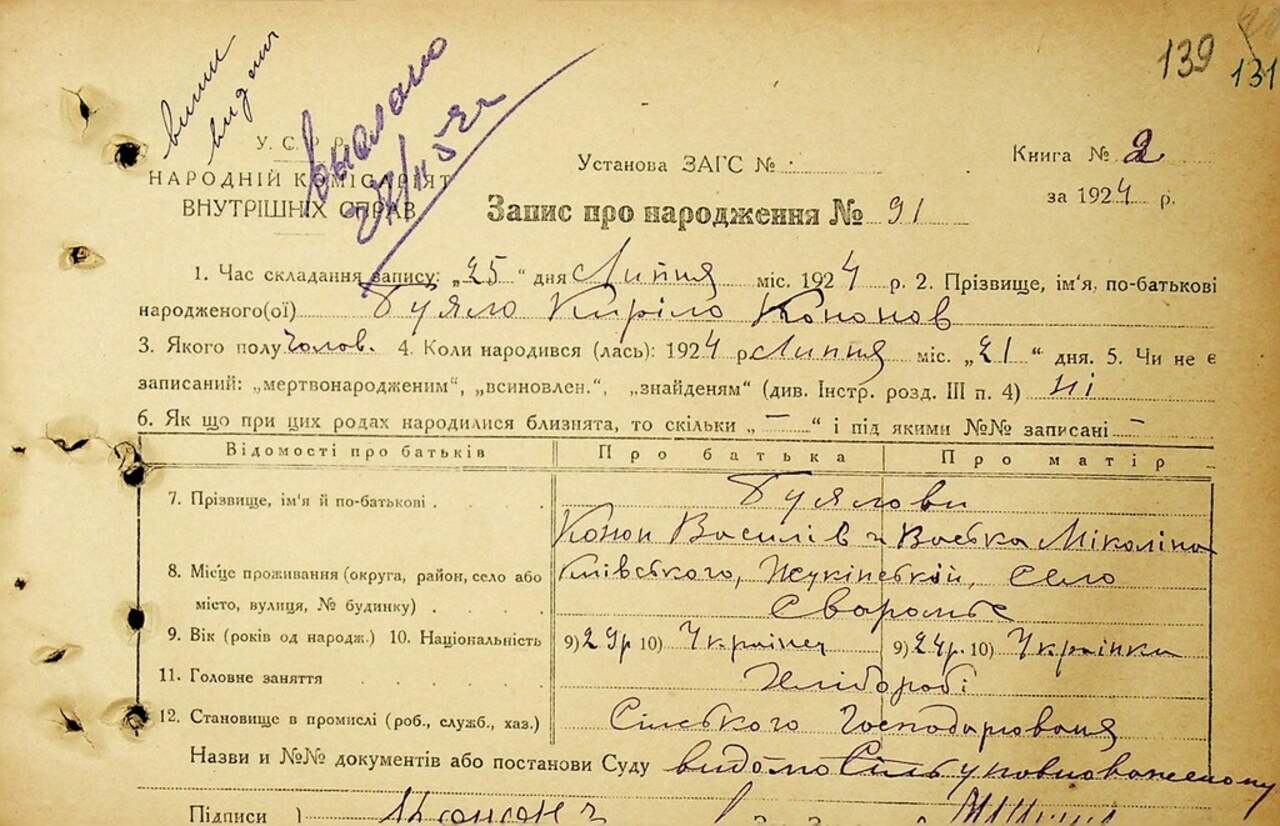 139
131
виписи
видани
Выслано
У. С. Р. Р.
НАРОДНІЙ КОМІСАРІЯТ
ВНУТРІШНІХ СПРАВ
Установа ЗАГС №
Книга № 2
за 1924 р.
Запис про народження № 91
1. Час складання запису: „25“ дня Липня міс. 1924 р. 2. Прізвище, ім'я, по-батькові
народженого(ої) Гуяло Кирило Кононов
3. Якого полу Чолов. 4. Коли народився (лась): 1924 р. Липня міс. „21“ дня. 5. Чи не є
записаний: „мертвонародженим“, „всиновлен.“, „знайденям“ (див. Інстр. розд. III п. 4) ні
6. Як що при цих родах народилися близнята, то скільки „—“ і під якими №№ записані —
Відомості про батьків Про батька Про матір
7. Прізвище, ім'я й по-батькові . Гуялови
Конон Василів и Васька Міколіна
8. Місце проживання (округа, район, село або Київського, Жукінській, Село
місто, вулиця, № будинку) . Сваромье
9. Вік (років од народж.) 10. Національність 9) 29р 10) Українец 9) 24р. 10) Українка
11. Головне заняття Хлібороби
12. Становище в промислі (роб., служб., хаз.) Сільського Господарюваня
Назви и №№ документів або постанови Суду видомо Сільуповноваженому
Підписи )